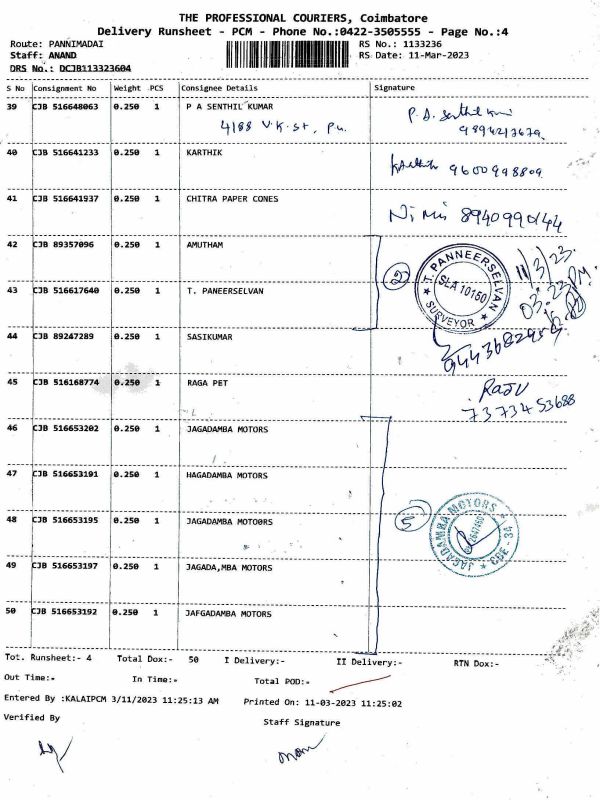 THE PROFESSIONAL COURIERS, Coimbatore
Delivery Runsheet - PCM - Phone No.:0422-3505555 - Page No.:4
Route: PANNIMADAI RS No.: 1133236
Staff: ANAND RS Date: 11-Mar-2023
DRS No.: DCJB113323604
S No Consignment No Weight PCS Consignee Details Signature
39 CJB 516648063 0.250 1 P A SENTHIL KUMAR P. A. Senthil
4188 V.K.St, Pu.
40 CJB 516641233 0.250 1 KARTHIK Karthik 9600998809
41 CJB 516641937 0.250 1 CHITRA PAPER CONES 8940990144
42 CJB 89357096 0.250 1 AMUTHAM
2 T. PANNEERSELVAN SLA 10160 SURVEYOR 11/3/23.
43 CJB 516617640 0.250 1 T. PANEERSELVAN
44 CJB 89247289 0.250 1 SASIKUMAR
45 CJB 516168774 0.250 1 RAGA PET RAJU
7373453688
46 CJB 516653202 0.250 1 JAGADAMBA MOTORS
47 CJB 516653191 0.250 1 HAGADAMBA MOTORS
48 CJB 516653195 0.250 1 JAGADAMBA MOTO0RS 5 JAGADAMBA MOTORS CBE-34
49 CJB 516653197 0.250 1 JAGADA,MBA MOTORS
50 CJB 516653192 0.250 1 JAFGADAMBA MOTORS
Tot. Runsheet:- 4 Total Dox:- 50 I Delivery:- II Delivery:- RTN Dox:-
Out Time:- In Time:- Total POD:-
Entered By :KALAIPCM 3/11/2023 11:25:13 AM Printed On: 11-03-2023 11:25:02
Verified By Staff Signature